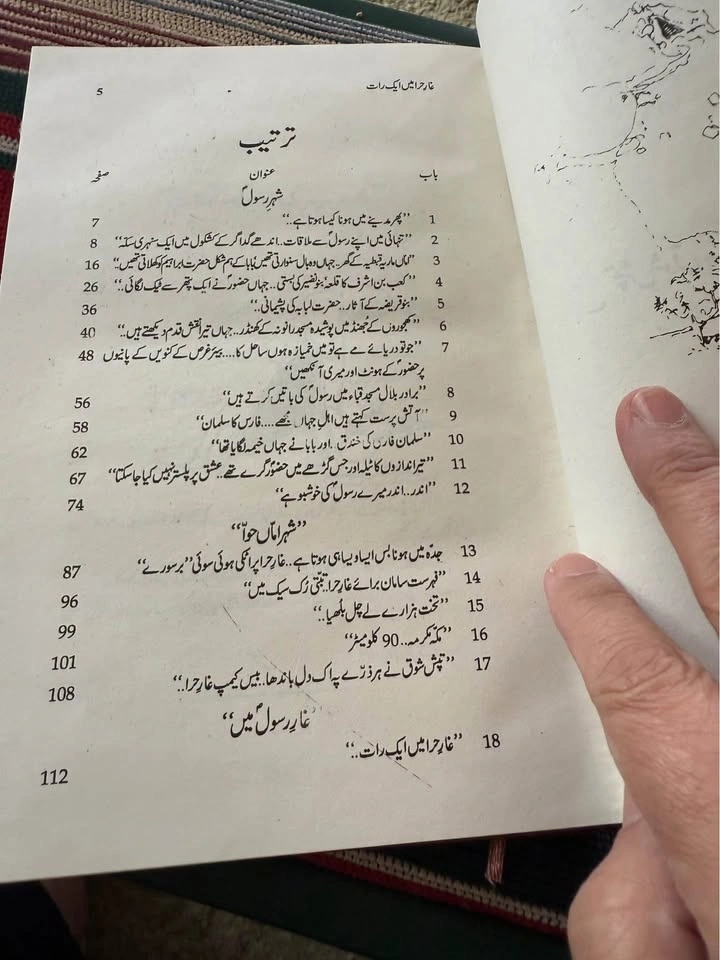 5 غارِ حرا میں ایک رات
ترتیب
باب عنوان صفحہ
شہرِ رسولؐ
1 ”پھر مدینے میں ہونا کیسا ہوتا ہے..“ 7
2 ”تنہائی میں اپنے رسولؐ سے ملاقات.. اندھے گداگر کے کشکول میں ایک سنہری سکہ“ 8
3 ”اماں ماریہ قبطیہ کے گھر.. جہاں وہ بال سنوارتی تھیں بابا کے ہم شکل حضرت ابراہیم کو کھلاتی تھیں“ 16
4 ”کعب بن اشرف کا قلعہ‘ بنو نضیر کی بستی.. جہاں حضورؐ نے ایک پتھر سے ٹیک لگائی..“ 26
5 ”بنو قریضہ کے آثار.. حضرت لبابہ کی پشیمانی..“ 36
6 ”کھجوروں کے جُھنڈ میں پوشیدہ مسجد رانونہ کے کھنڈر.. جہاں تیرا نقش قدم دیکھتے ہیں..“ 40
7 ”جو تُو دریائے مے ہے تو میں خمیازہ ہوں ساحل کا.... بیئر غرص کے کنویں کے پانیوں 48
پر حضورؐ کے ہونٹ اور میری آنکھیں“
8 ”برادر بلال مسجد قباء میں رسولؐ کی باتیں کرتے ہیں“ 56
9 ”آتش پرست کہتے ہیں اہلِ جہاں مُجھے.... فارس کا سلمان“ 58
10 ”سلمان فارسی کی خندق.. اور بابا نے جہاں خیمہ لگایا تھا“ 62
11 ”تیر اندازوں کا ٹیلہ اور جس گڑھے میں حضورؐ گرے تھے.. عشق پر پلستر نہیں کیا جا سکتا“ 67
12 ”اندر.. اندر میرے رسولؐ کی خوشبو ہے“ 74
”شہر اماں حوّا“
13 جدّہ میں ہونا بس ایسا ویسا ہی ہوتا ہے.. غارِ حرا پر اٹکی ہوئی سوئی ”بر سورے“ 87
14 ”فہرست سامان برائے غارِ حرا.. تبتّی رُک سیک میں“ 96
15 ”تخت ہزارے لے چل بلھیا..“ 99
16 ”مکّہ مکرمہ.. 90 کلومیٹر“ 101
17 ”تپش شوق نے ہر ذرّے پہ اک دل باندھا.. بیس کیمپ غارِ حرا..“ 108
”غارِ رسولؐ میں“
18 ”غارِ حرا میں ایک رات..“ 112